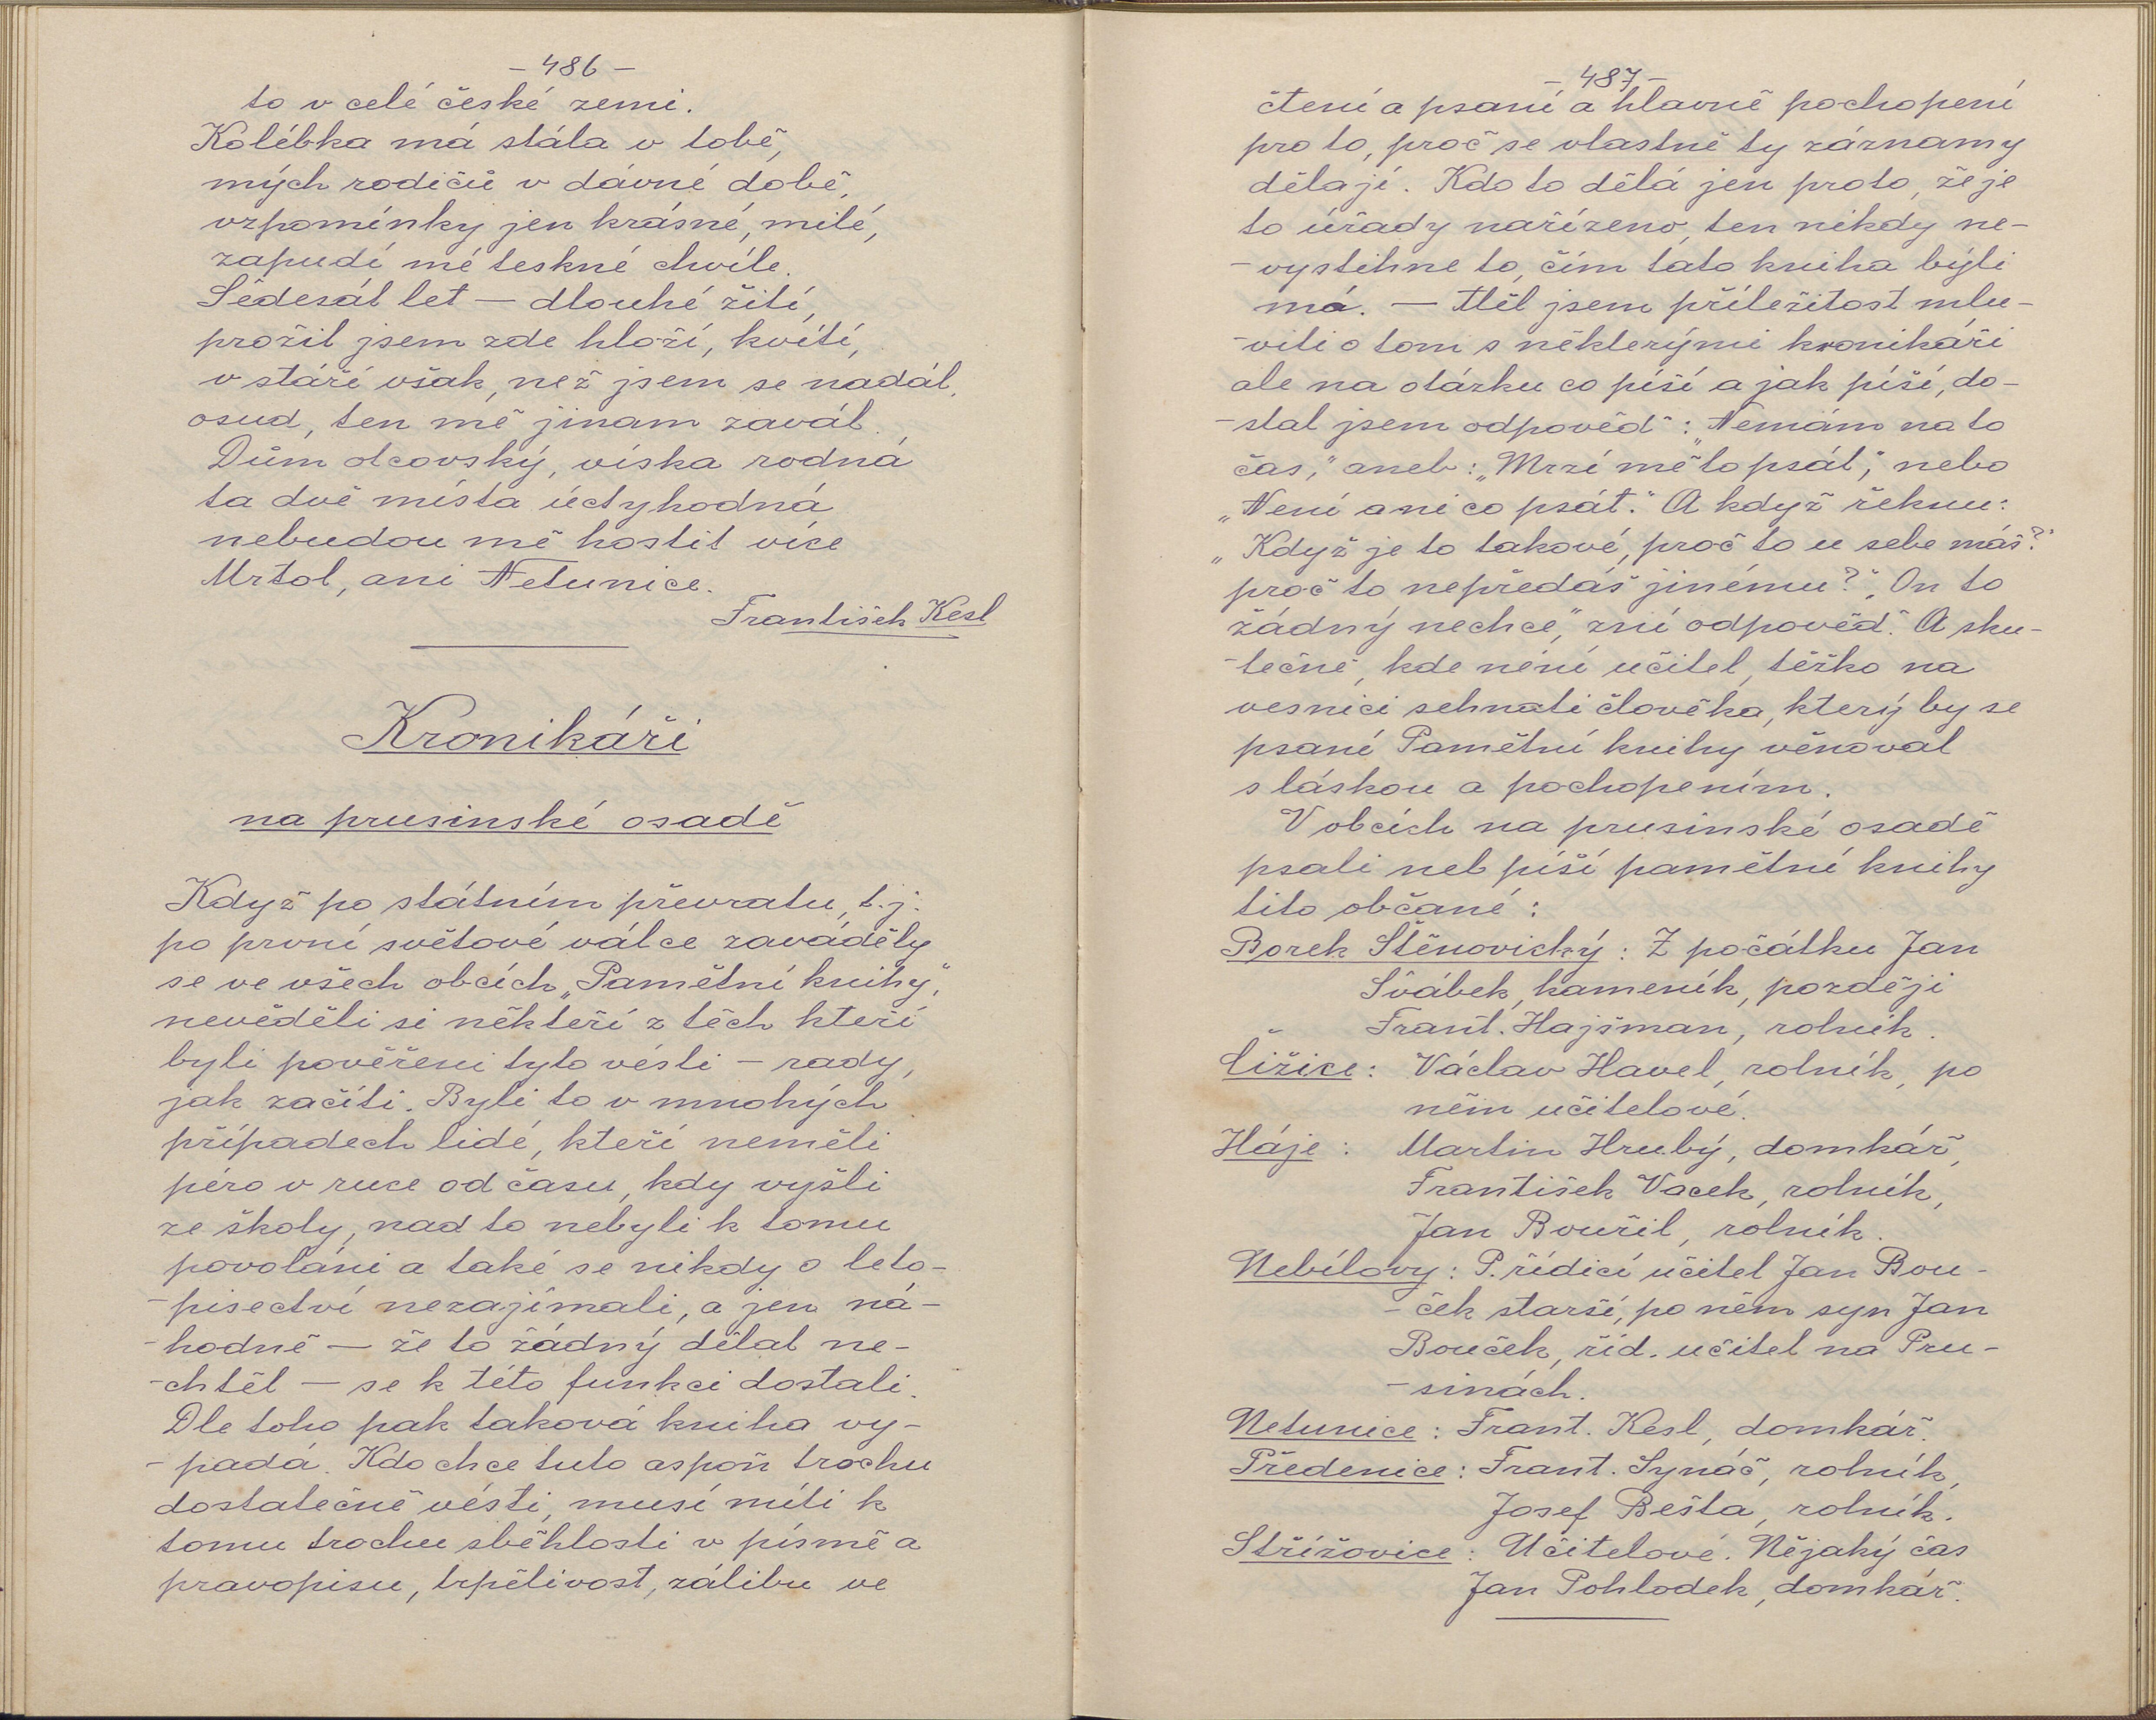 - 486 -
to v celé české zemi.
Kolébka má stála v tobě,
mých rodičů v dávné době,
vzpomínky jen krásné, milé,
zapudí mé teskné chvíle.
Šedesát let — dlouhé žití,
prožil jsem zde hloží, kvítí,
v stáří však, než jsem se nadál,
osud, ten mě jinam zavál.
Dům otcovský, víska rodná
ta dvě místa úctyhodná
nebudou mě hostit více
Mrtol, ani Netunice.
František Kesl
Kronikáři
na prusinské osadě
Když po státním převratu, t.j.
po první světové válce zaváděly
se ve všech obcích „Pamětní knihy",
nevěděli si někteří z těch kteří
byli pověřeni tyto vésti — rady,
jak začíti. Byli to v mnohých
případech lidé, kteří neměli
péro v ruce od času, kdy vyšli
ze školy, nad to nebyli k tomu
povoláni a také se nikdy o leto-
-pisectví nezajímali, a jen ná-
-hodně — že to žádný dělat ne-
-chtěl — se k této funkci dostali.
Dle toho pak taková kniha vy-
-padá. Kdo chce tuto aspoň trochu
dostatečně vésti, musí míti k
tomu trochu sběhlosti v písmě a
pravopisu, trpělivost, zálibu ve
- 487 -
čtení a psaní a hlavně pochopení
pro to, proč se vlastně ty záznamy
dělají. Kdo to dělá jen proto, že je
to úřady nařízeno, ten nikdy ne-
-vystihne to, čím tato kniha býti
má. — Měl jsem příležitost mlu-
-viti o tom s některými kronikáři
ale na otázku co píší a jak píší, do-
-stal jsem odpověď: „Nemám na to
čas," aneb: „Mrzí mě to psát", nebo
„Není ani co psát." A když řeknu:
„Když je to takové, proč to u sebe máš?"
proč to nepředáš jinému?" „On to
žádný nechce", zní odpověď. A sku-
-tečně, kde není učitel, těžko na
vesnici sehnati člověka, který by se
psaní Pamětní knihy věnoval
s láskou a pochopením.
V obcích na prusinské osadě
psali neb píší pamětní knihy
tito občané:
Borek Štěnovický: Z počátku Jan
Švábek, kameník, později
Frant. Hajšman, rolník.
Čižice: Václav Havel, rolník, po
něm učitelové.
Háje: Martin Hrubý, domkář,
František Vacek, rolník,
Jan Bouřil, rolník.
Nebílovy: P. řídicí učitel Jan Bou-
-ček starší, po něm syn Jan
Bouček, říd. učitel na Pru-
-sinách.
Netunice: Frant. Kesl, domkář.
Předenice: Frant. Synáč, rolník,
Josef Bešta, rolník.
Střížovice: Učitelové. Nějaký čas
Jan Pohlodek, domkář.